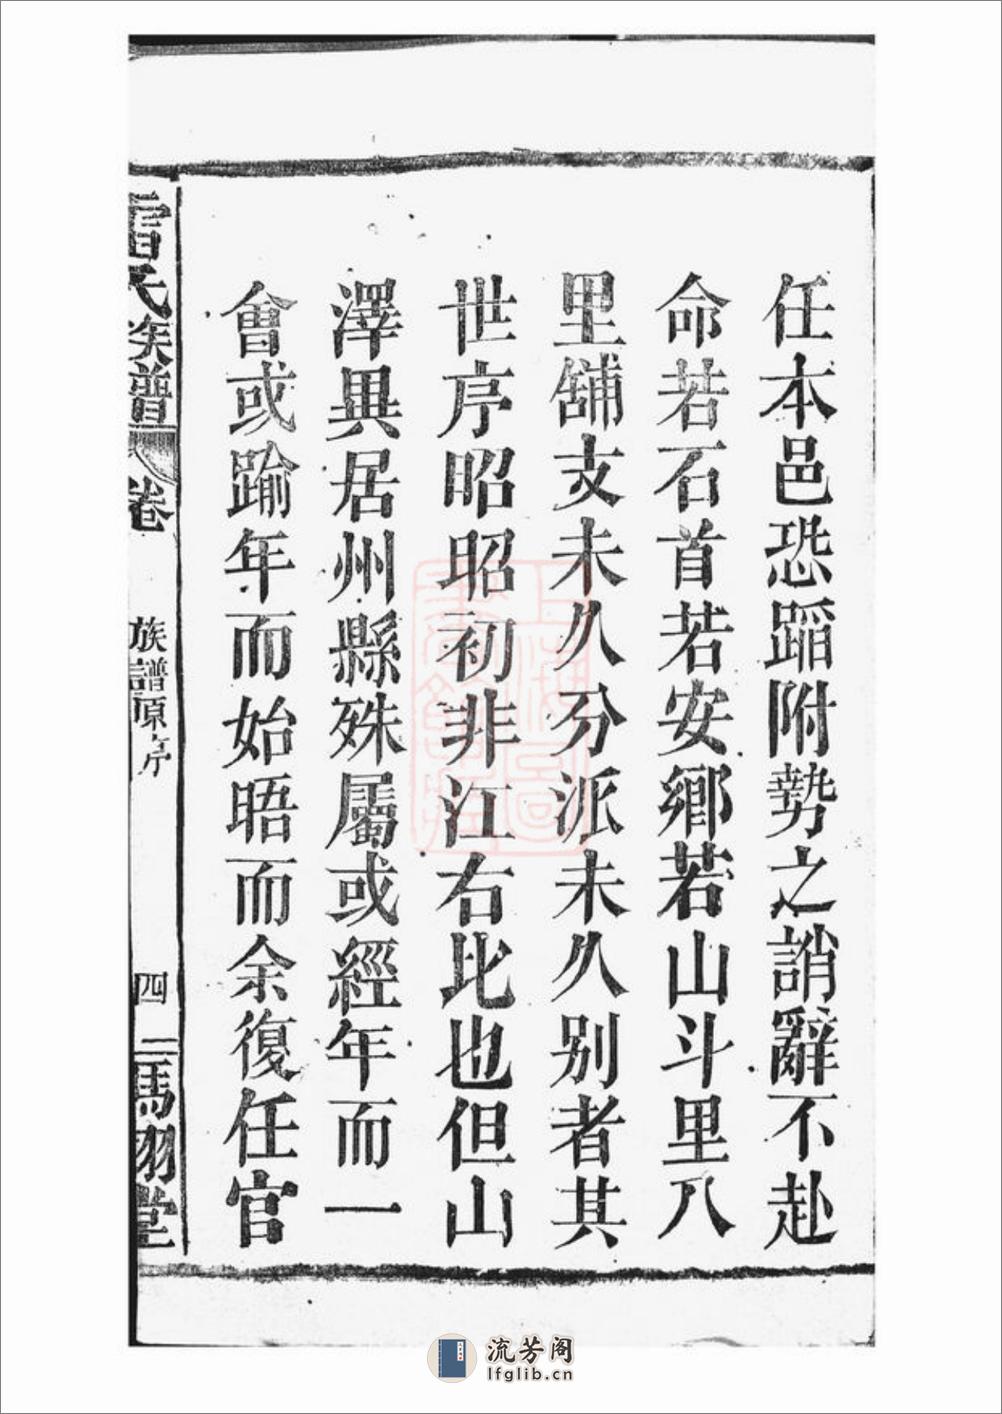 任本邑恐蹈附勢之誚辭不赴
命若石首若安鄉若山斗里八
里舖支未久分派未久别者其
世序昭昭初非江右比也但山
澤異居州縣殊屬或經年而一
會或踰年而始晤而余復任官
氏族譜 卷 族譜原序 四 馬翊堂
流芳阁
lfglib.cn